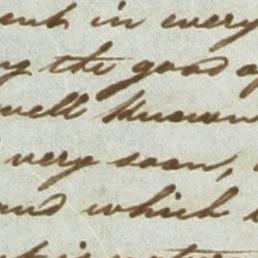 ent in every
the good
well known
very soon,
and which